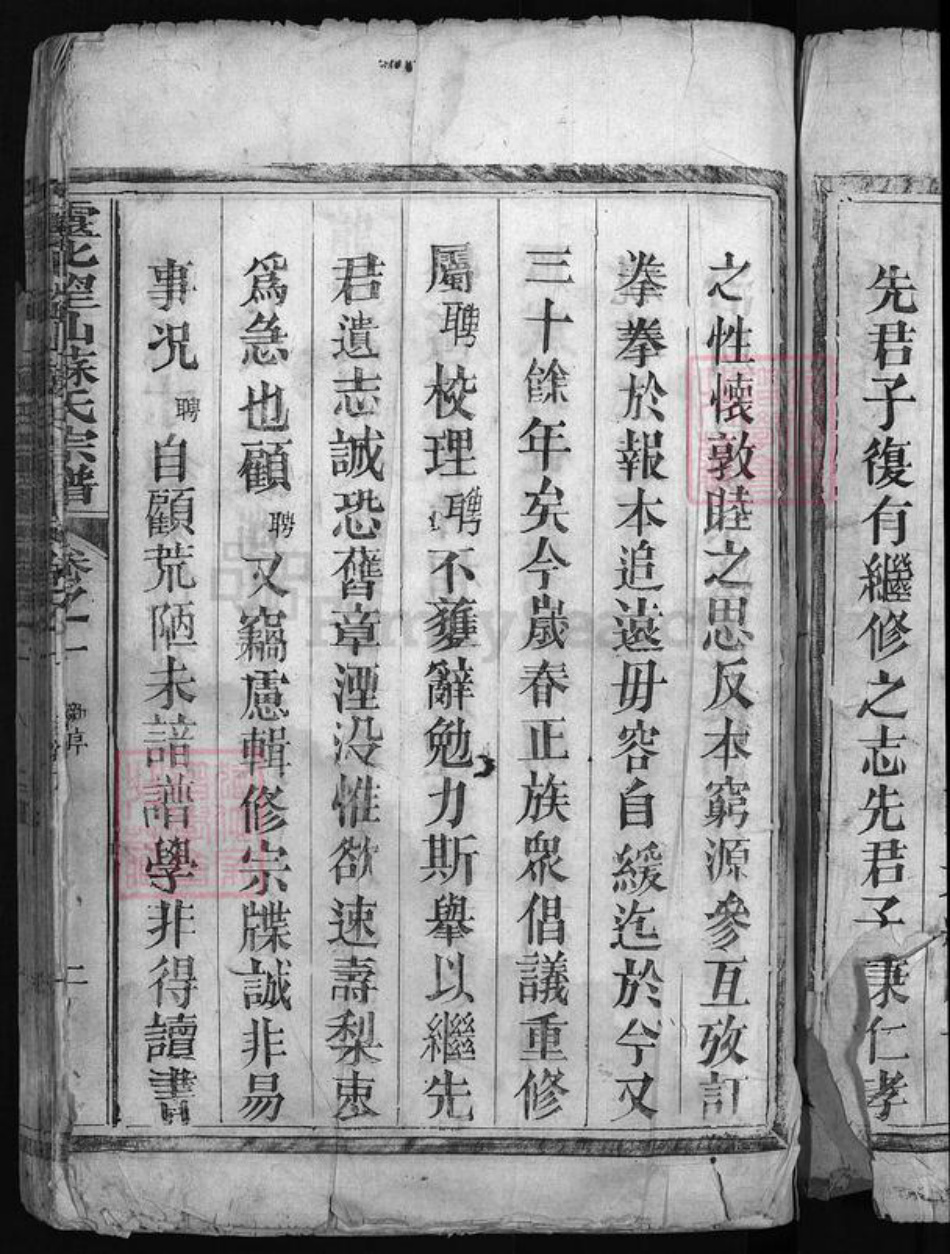 先君子復有繼修之志先君子秉仁孝
之性懷敦睦之思反本窮源參互攷訂
拳拳於報本追遠毋容自緩迄於今又
三十餘年矣今歲春正族衆倡議重修
屬聘校理聘不獲辭勉力斯舉以繼先
君遺志誠恐舊章湮没惟欲速壽梨棗
爲急也顧聘又竊慮輯修宗牒誠非易
事况聘自顧荒陋未諳譜學非得讀書
望仙蘇氏宗譜 卷之一 序 二